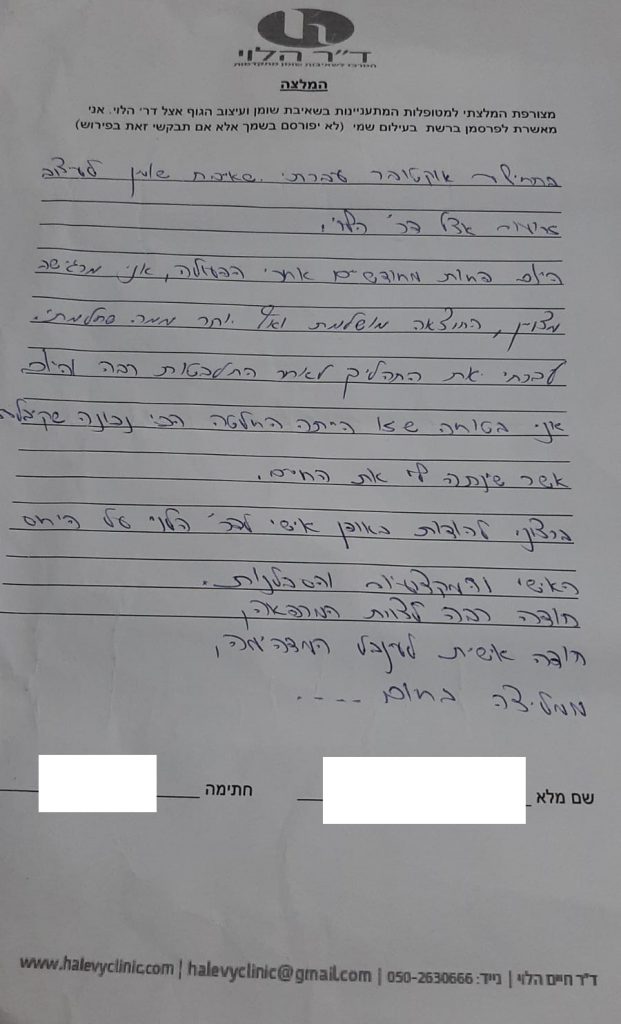 ד״ר הלוי
המרכז לשאיבות שומן מתקדמות
המלצה
מצורפת המלצתי למטופלות המתעניינות בשאיבת שומן ועיצוב הגוף אצל דר׳ הלוי. אני
מאשרת לפרסמן ברשת בעילום שמי (לא יפורסם בשמך אלא אם תבקשי זאת בפירוש)
בתחילת אוקטובר עברתי שאיבת שומן לעיצוב
אצל דר׳ הלוי.
היום פחות מחודשיים אחרי הפעולה, אני מרגישה
מצוין, התוצאה מושלמת ואף יותר ממה שחלמתי.
עברתי את התהליך לאחר התלבטות רבה והיום
אני בטוחה שזו הייתה החלטה הכי נכונה שקיבלתי
אשר שינתה לי את החיים.
ברצוני להודות באופן אישי לדר׳ הלוי על היחס
האישי והמקצועיות והסבלנות.
תודה רבה לצוות המרפאה,
תודה אישית לענבל המדהימה,
ממליצה בחום ....
שם מלא
חתימה
ד״ר חיים הלוי | נייד: 050-2630666 | halevyclinic@gmail.com | www.halevyclinic.com